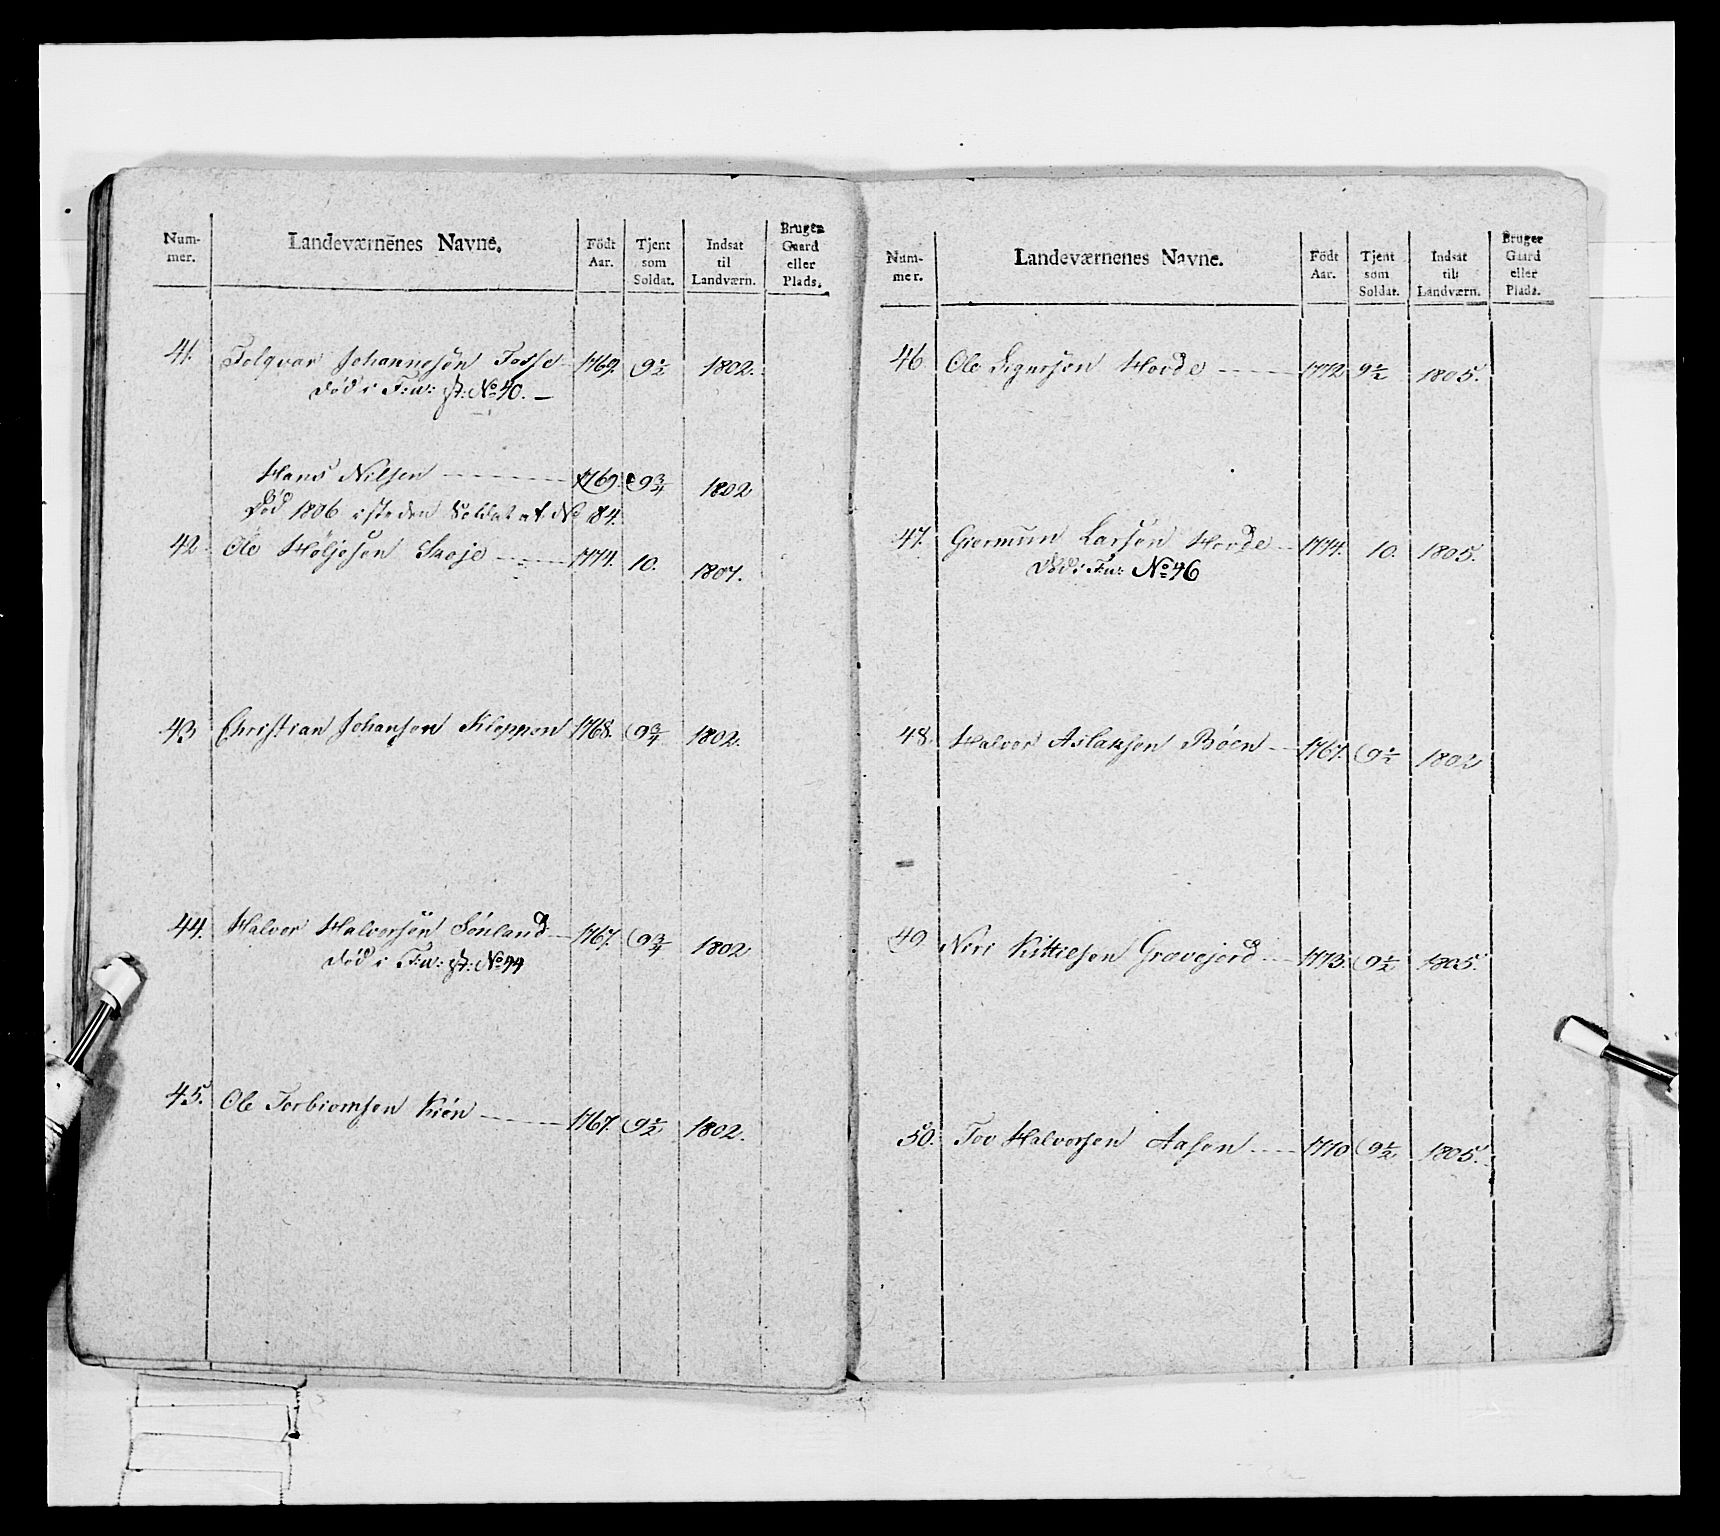 Num-
mer.
Landeværnenes Navne.
Födt
Aar.
Tjent
som
Soldat.
Indsat
til
Landværn.
Bruger
Gaard
eller
Plads.
41. Tolqvar Johannesøn Fosse 1769. 9½ 1802.
Død i F:w: st: No 40.
Hans Nilsen 1769. 9¾ 1802
Død 1806 isteden Soldat af No 84.
42 Ole Høljesen Skoje 1774. 10. 1807.
43 Christian Johansen Kleppen 1768. 9¾ 1802.
44. Halvor Halvorsen Sønland 1767. 9¾ 1802
Død i F:w: st: No 44
45. Ole Torbiornsen Kiøn 1767. 9½ 1802.
Num-
mer.
Landeværnenes Navne.
Födt
Aar.
Tjent
som
Soldat.
Indsat
til
Landværn.
Bruger
Gaard
eller
Plads.
46 Ole Sigursen Hovde 1772 9½ 1805.
47. Giermun Larsøn Hovde 1774. 10. 1805.
Død i F:w: No 46
48. Halvor Aslaksen Bøen 1767. 9½ 1802
49 Niri Kittelsen Gravejord 1773. 9½ 1805.
50. Tov Halvorsen Aasen 1770 9½ 1805.